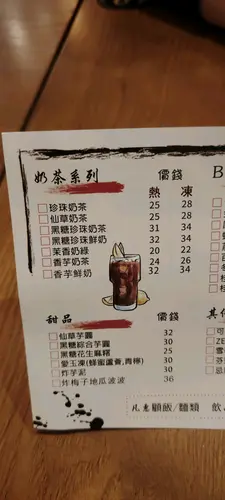 奶茶系列 價錢
熱 凍
珍珠奶茶 25 28
仙草奶茶 25 28
黑糖珍珠奶茶 31 34
黑糖珍珠鮮奶 32 34
茉香奶綠 20 22
香芋奶茶 24 26
香芋鮮奶 32 34
甜品 價錢
仙草芋圓 32
黑糖綜合芋圓 30
黑糖花生麻糬 25
愛玉凍(蜂蜜蘆薈,青檸) 30
炸芋泥 30
炸梅子地瓜波波 36
凡惠顧飯/麵類